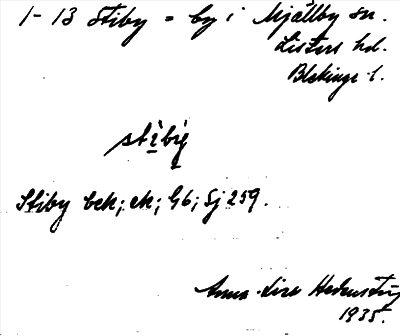 1-13 Stiby = by i Mjällby sn.
Listers hd.
Blekinge l.
stìbỳ
Stiby bek; ek; Gb; Sj 259.
Anna-Lisa
1935.